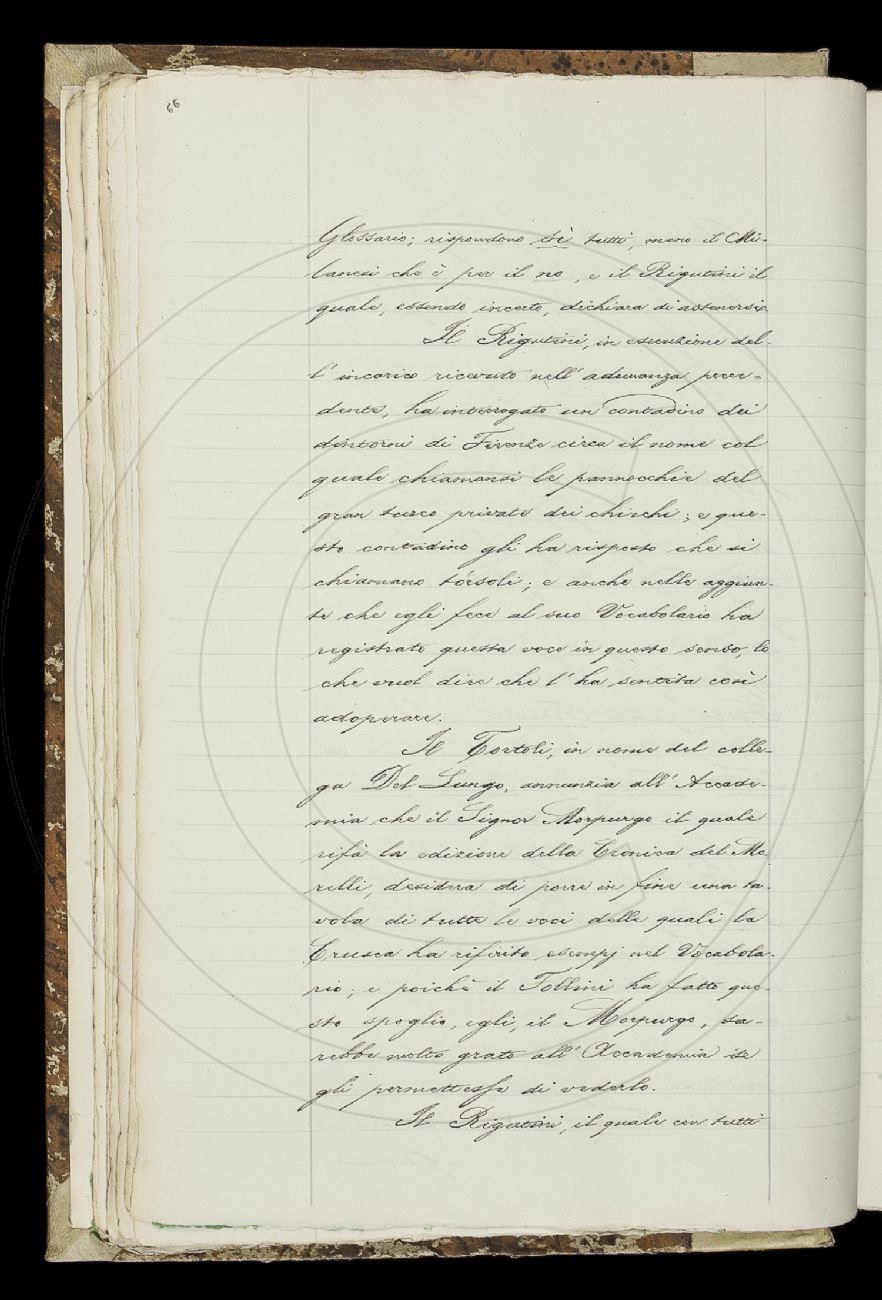 66
Glossario; rispondono sì tutti, meno il Mi-
lanesi che è per il no, e il Rigutini il
quale, essendo incerto, dichiara di astenersi.
Il Rigutini, in esecuzione del-
l'incarico ricevuto nell'adunanza prece-
dente, ha interrogato un contadino dei
dintorni di Firenze circa il nome col
quale chiamansi le pannocchie del
gran turco private dei chicchi; e que-
sto contadino gli ha risposto che si
chiamano tórsoli; e anche nelle aggiun-
te che egli fece al suo Vocabolario ha
registrato questa voce in questo senso, lo
che vuol dire che l'ha sentita così
adoperare.
Il Tortoli, in nome del colle-
ga Del Lungo, annunzia all'Accade-
mia che il Signor Morpurgo il quale
rifà la edizione della Cronica del Mo
relli, desidera di porre in fine una ta-
vola di tutte le voci delle quali la
Crusca ha riferito esempj nel Vocabola-
rio; e poichè il Follini ha fatto que-
sto spoglio, egli, il Morpurgo, sa-
rebbe molto grato all'Accademia se
gli permettesse di vederlo.
Il Rigutini, il quale con tutti